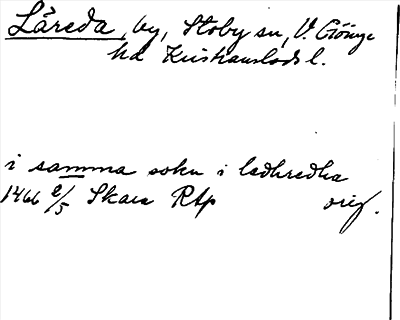 Läreda, by, Stoby sn, V. Göinge
hd Kristianstads l.
i samma sokn i ladhredha
1466 2/5 Skara RAp orig.